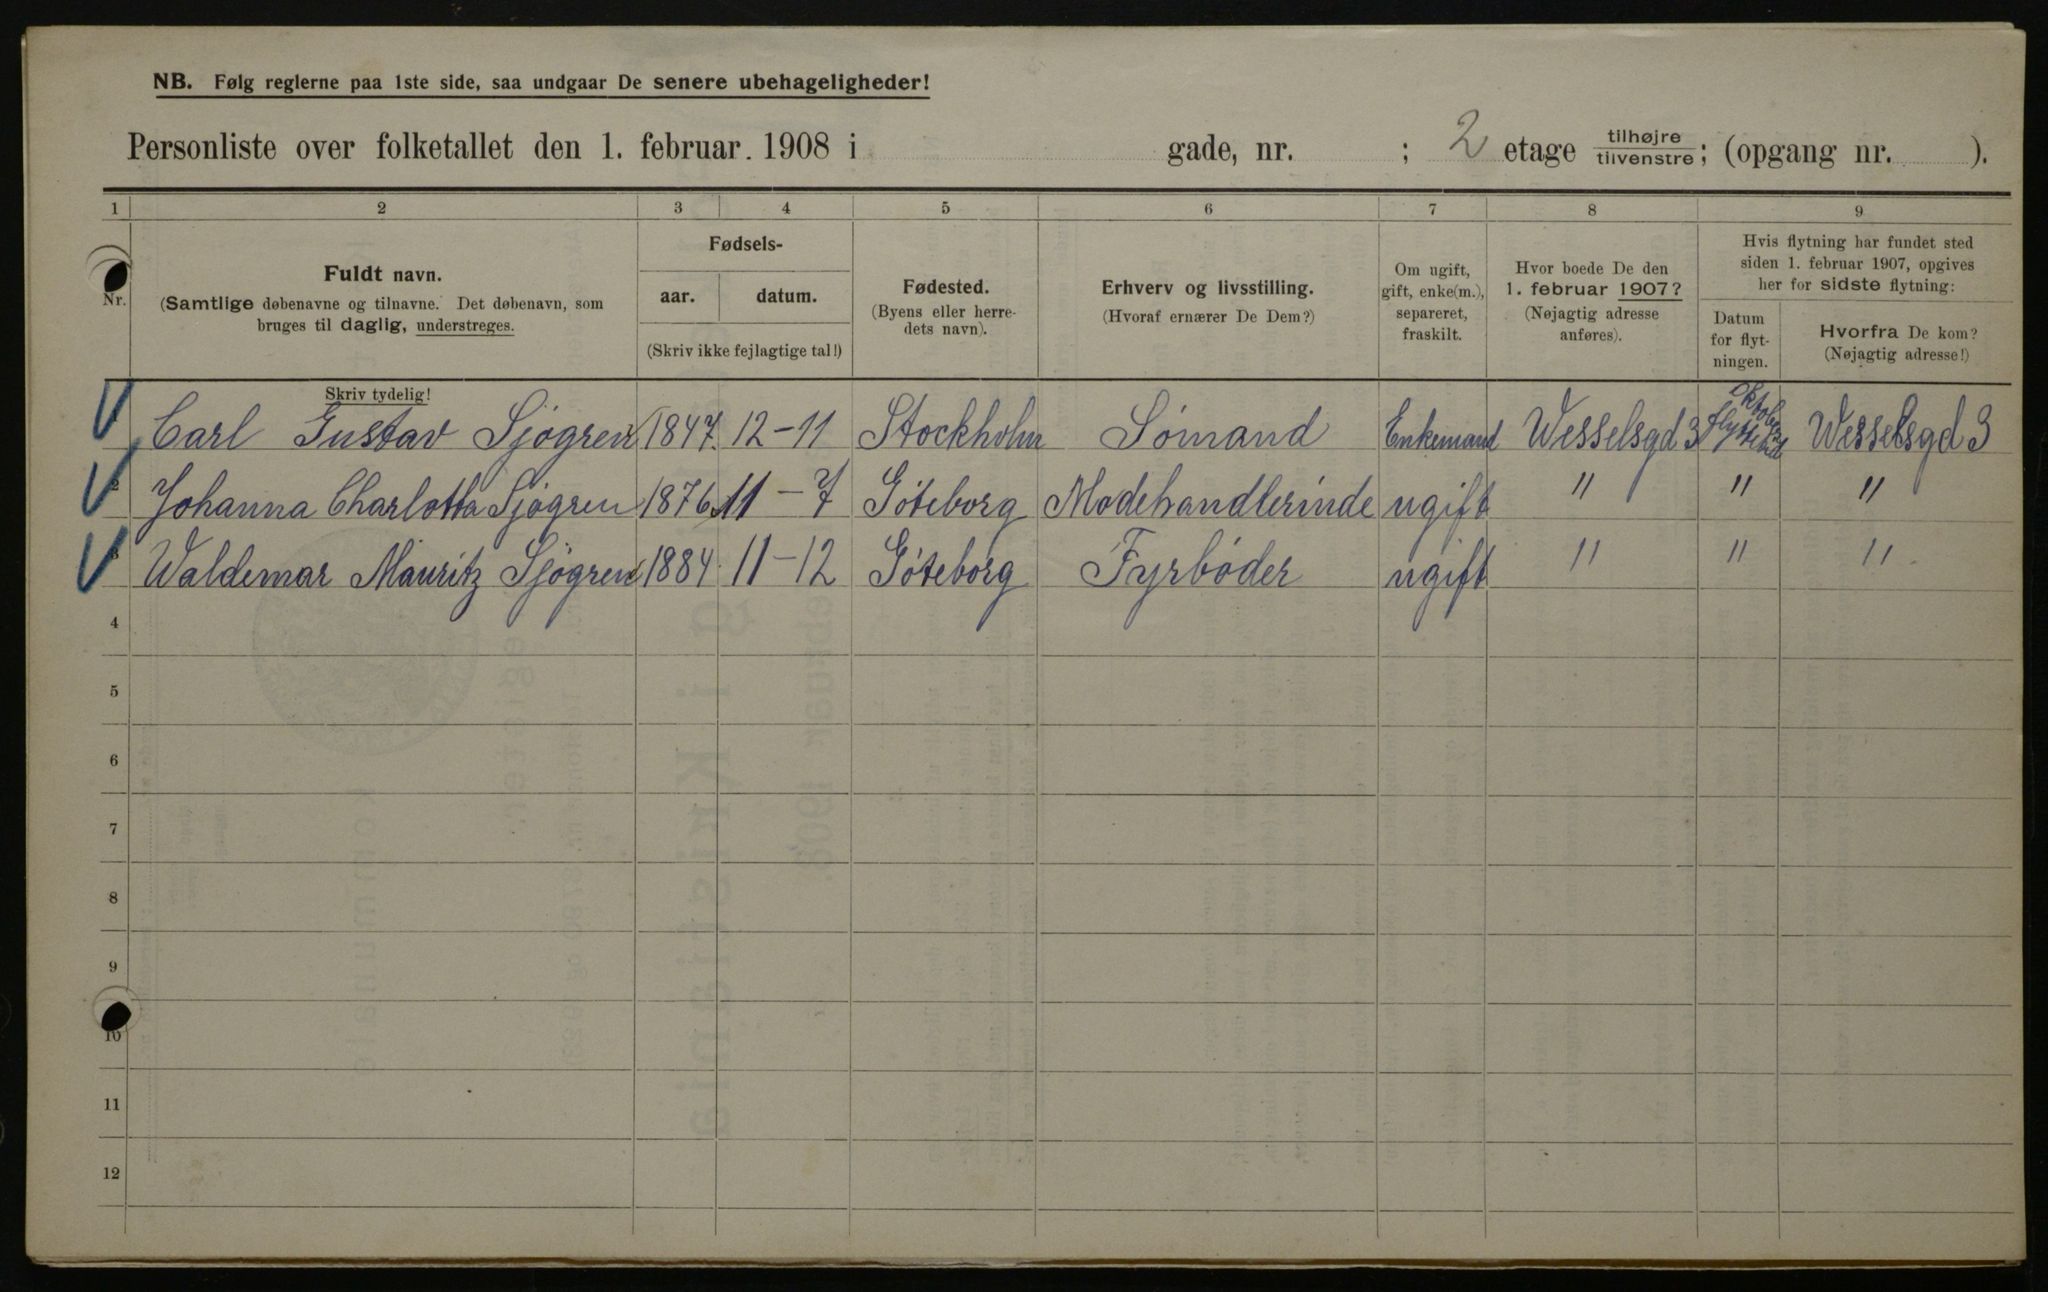 NB. Følg reglerne paa 1ste side, saa undgaar De senere ubehageligheder!
Personliste over folketallet den 1. februar 1908 i gade, nr. ; 2 etage tilhøjre/tilvenstre; (opgang nr. ).
1 2 3 4 5 6 7 8 9
Nr.
Fuldt navn.
(Samtlige døbenavne og tilnavne. Det døbenavn, som
bruges til daglig, understreges.
Fødsels-
aar. datum.
(Skriv ikke fejlagtige tal!)
Fødested.
(Byens eller herre-
dets navn).
Erhverv og livsstilling.
(Hvoraf ernærer De Dem?)
Om ugift,
gift, enke(m.),
separeret,
fraskilt.
Hvor boede De den
1. februar 1907?
(Nøjagtig adresse
anføres).
Hvis flytning har fundet sted
siden 1. februar 1907, opgives
her for sidste flytning:
Datum
for flyt-
ningen.
Hvorfra De kom?
(Nøjagtig adresse!)
Skriv tydelig!
1 Carl Gustav Sjøgren 1847. 12-11 Stockholm Sømand Enkemand Wesselsgd 3 Oktober Flyttetid Wesselsgd 3
2 Johanna Charlotta Sjøgren 1876 11-7 Gøteborg Modehandlerinde ugift " " "
3 Waldemar Mauritz Sjøgren 1884 11-12 Gøteborg Fyrbøder ugift " " "
4
5
6
7
8
9
10
11
12